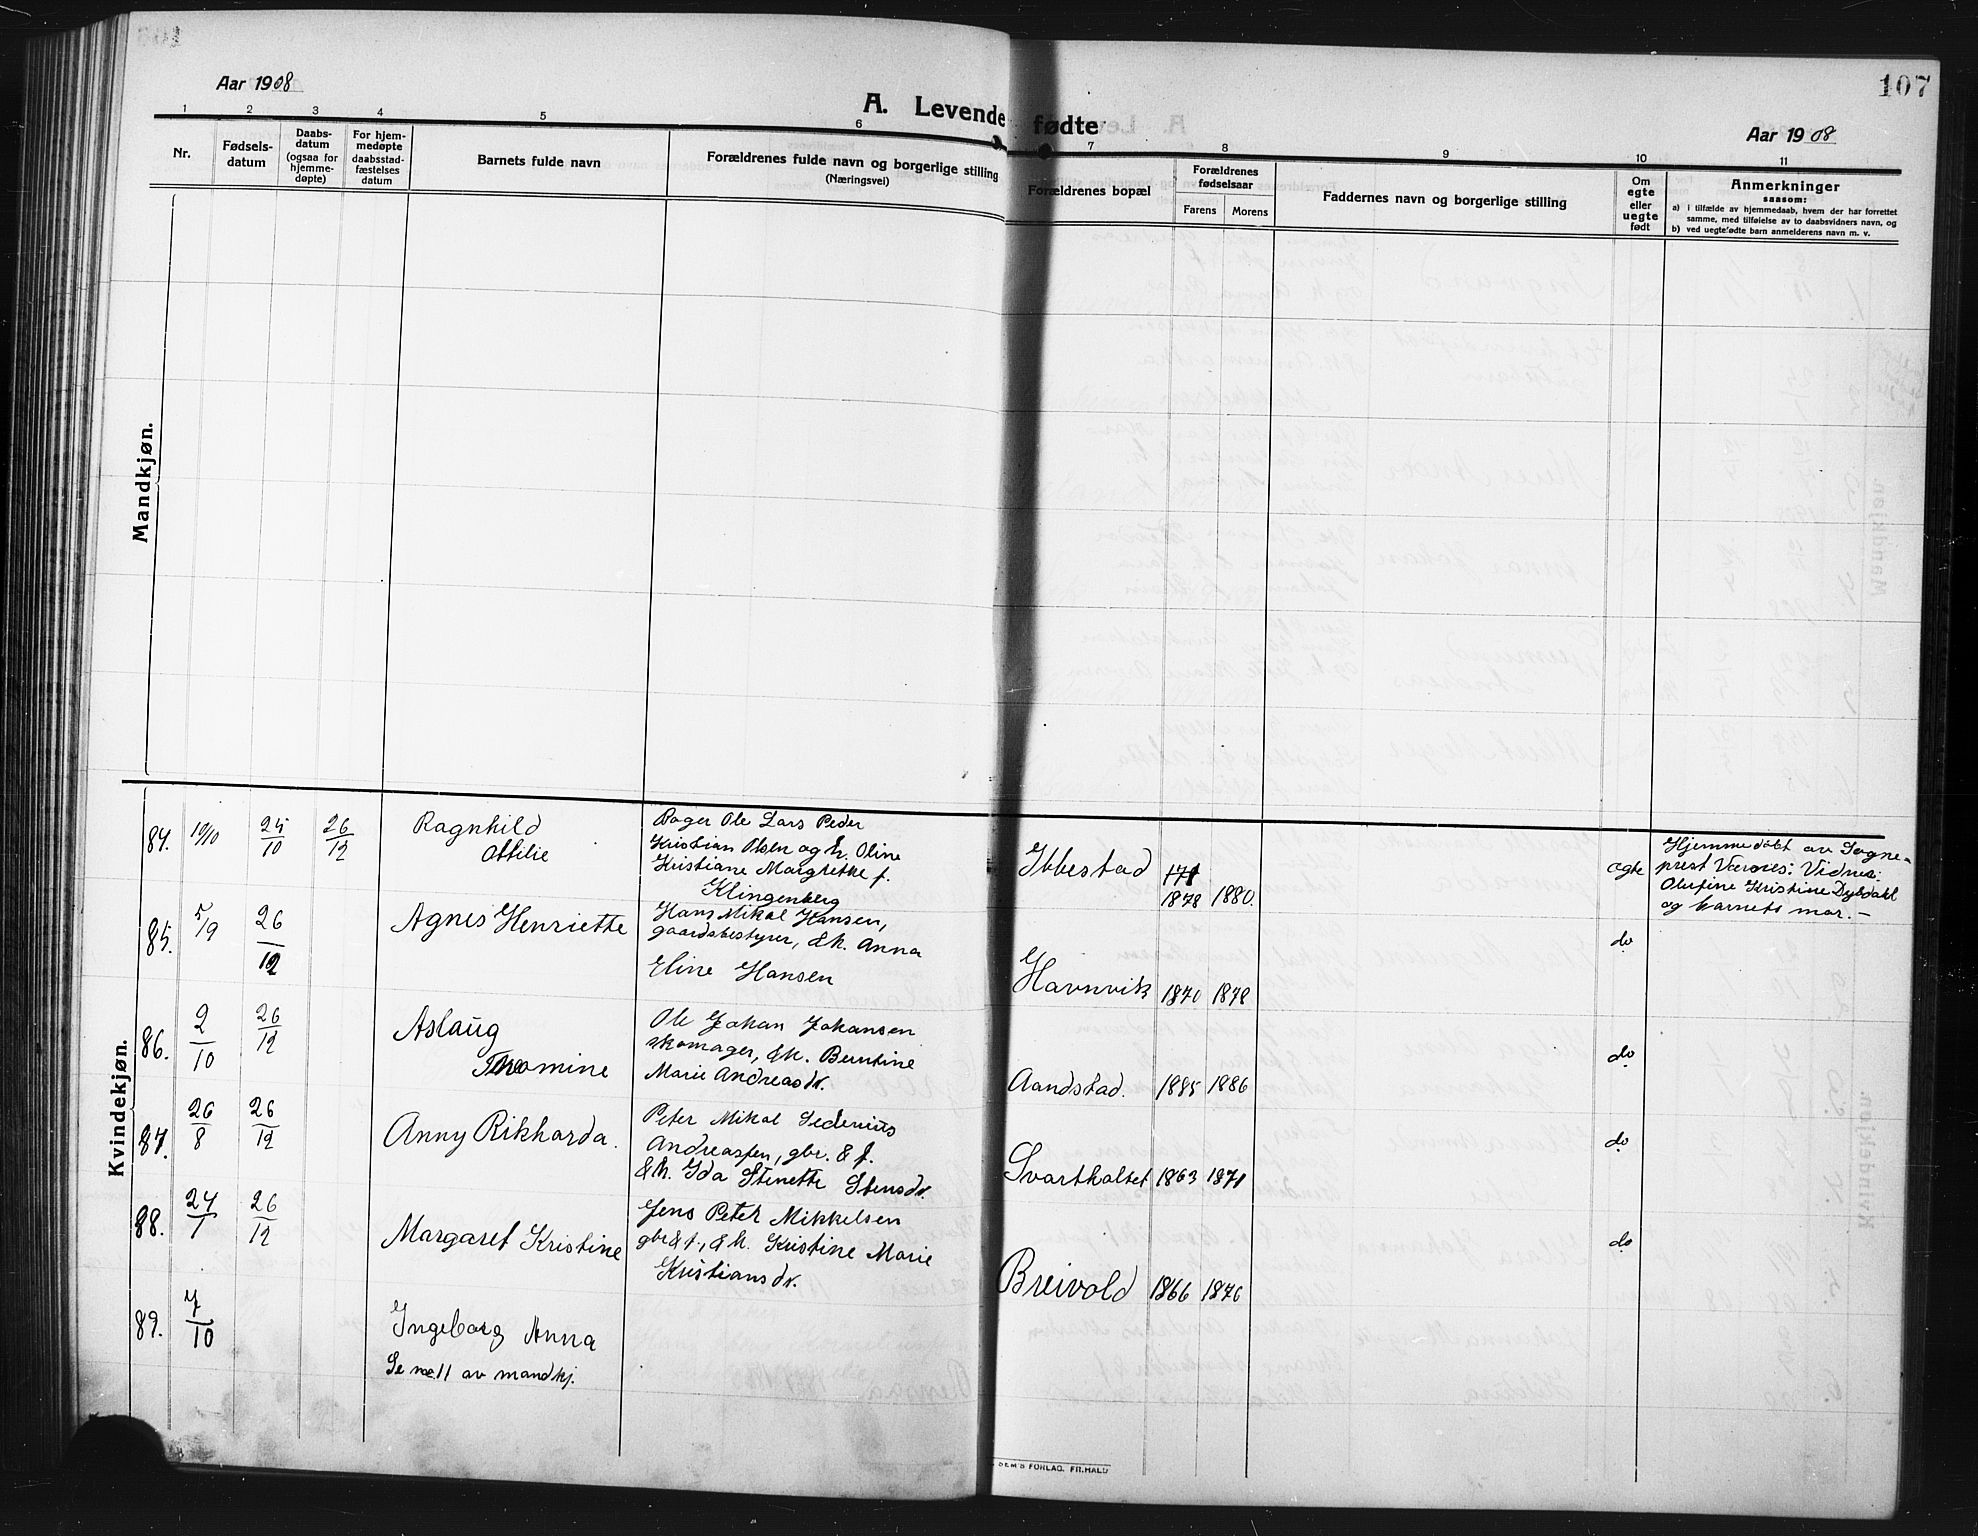 107
Aar 1908
A. Levende fødte
Aar 1908
1 2 3 4 5 6 7 8 9 10 11
Nr.
Fødsels-
datum
Daabs-
datum
(ogsaa for
hjemme-
døpte)
For hjem-
medøpte
daabsstad-
fæstelses
datum
Barnets fulde navn
Forældrenes fulde navn og borgerlige stilling
(Næringsvei)
Forældrenes bopæl
Forældrenes
fødselsaar
Farens Morens
Faddernes navn og borgerlige stilling
Om
egte
eller
uegte
født
Anmerkninger
saasom:
a) i tilfælde av hjemmedaab, hvem der har forrettet
samme, med tilføielse av to daabsvidners navn, og
b) ved uegtefødte barn anmelderens navn m. v.
Mandkjøn.
Kvindekjøn.
84. 10/10 25/10 26/12
Ragnhild
Ottilie
Bager Ole Lars Peder
Kristian Olsen og h. Oline
Kristiane Margrethe f.
Klingenberg
Ibbestad
1878 1880.
egte
Hjemmedøbt av Sogne-
prest Værøes: Vidnes:
Olufine Kristine Dybdahl
og barnets mor. –
85. 5/9 26/12
Agnes Henriette
Hans Mikal Hansen,
gaardsbestyrer, & h. Anna
Eline Hansen
Havnvik 1870 1878
do
86. 2/10 26/12
Aslaug
Thomine
Ole Johan Johansen
skomager, & h. Berntine
Marie Andreasdr.
Aandstad. 1885 1886
do
87. 26/8 26/12
Anny Rikharda.
Peter Mikal Sedenius
Andreassen, gbr. & f.
& h. Ida Stenette Stensdr.
Svartholtet 1863 1871
do
88. 24/1 26/12
Margaret Kristine
Jens Peter Mikkelsen
gbr & f., & h. Kristine Marie
Kristiansdr.
Breivold 1866 1876
do
89. 7/10
Ingeborg Anna
Se no. 11 av mandkj.
DEM'S FORLAG. FR.HALD